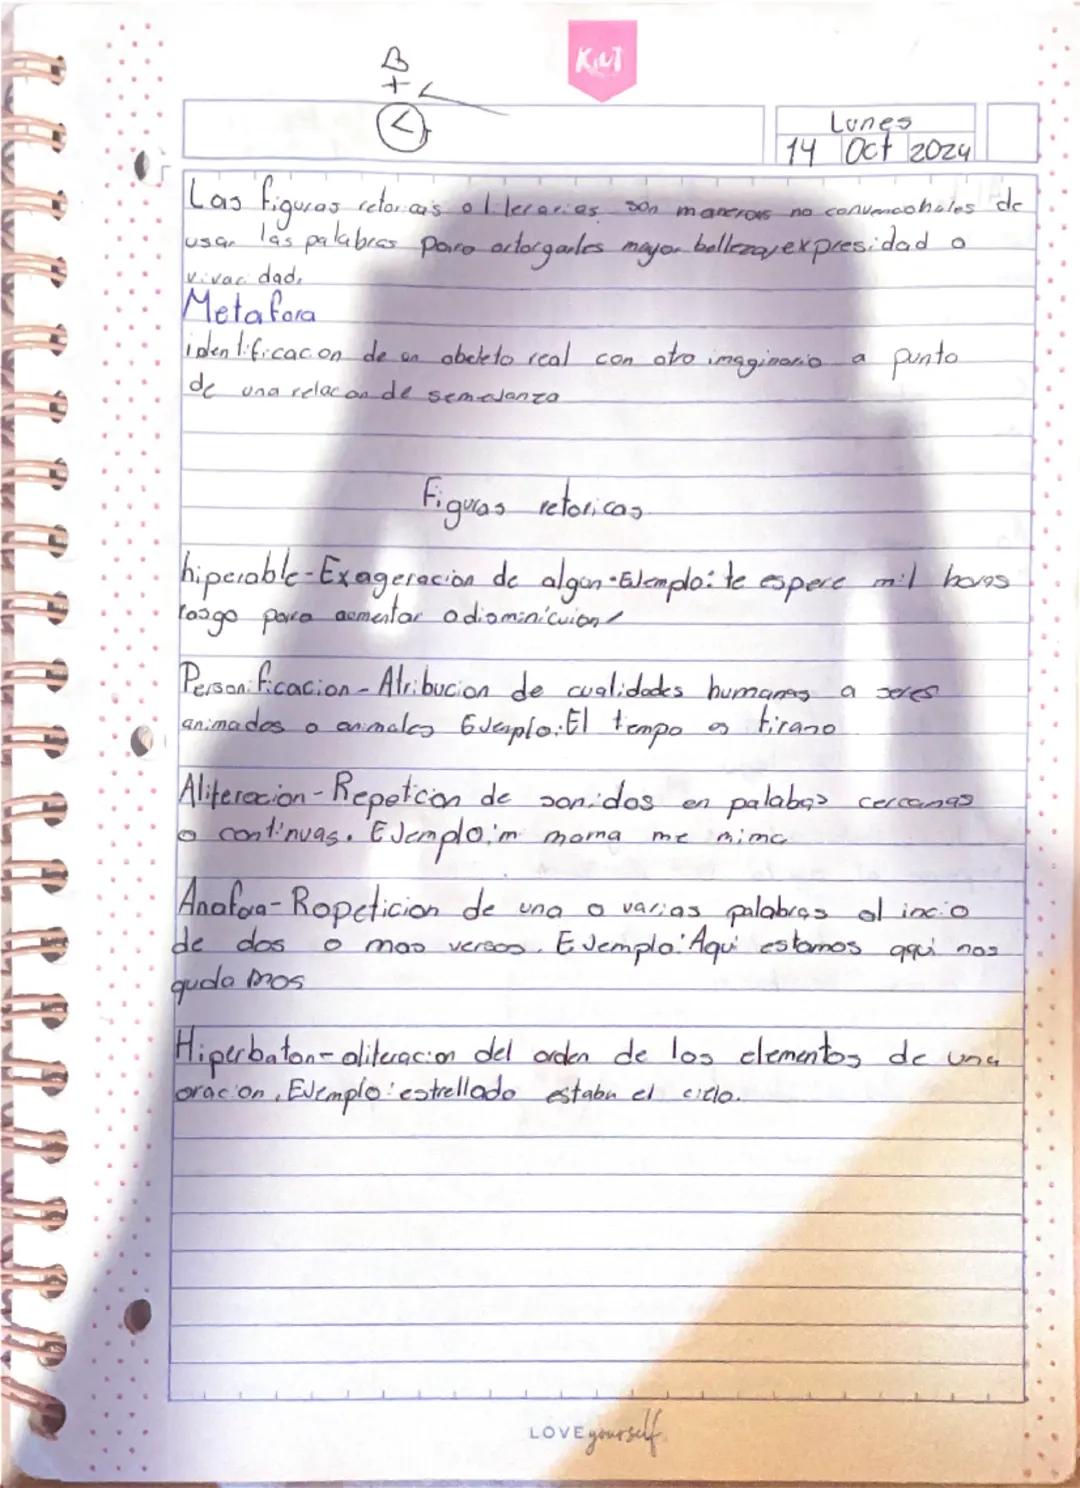 KIUT
B
+
Lunes
14 Oct 2024
Las figuras retoricas o literarias son maneras no convencohales de
usar las palabras para ortorgarles mayor belleza, expresidad o
vivacidad.
Metafora
identificacon de un obeleto real con otro imaginario a punto
de una relacon de semeJanza
Figuras retoricas
hiperable-Exageracion de algun-EJemplo: te espere mil horas
rasgo para aumentar o diominicuion
Personificacion-Atribucion de cualidades humanas a seres
animados o animales EJemplo: El tempo es tirano
Aliteracion-Repetcion de sonidos en palabas cercanas
o continuas. EJemplo: m mama me mima
Anafora-Ropeticion de una o varias palabras al incio
de dos o mas versos. EJemplo: Aqui estamos aqui nos
qudamos
Hiperbaton-aliteracion del orden de los elementos de una
oracion. EJemplo: estrellado estaba el cielo.
LOVE yourself